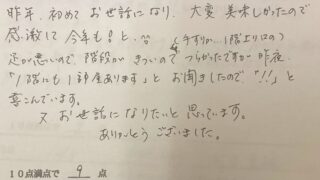 昨年、初めてお世話になり、大変美味しかったので
感激して今年も!と、^^
(手すりが…1階上り口の)
足が悪いので、階段がきついのでつらかったですが昨夜、
「1階にも1部屋あります」とお聞きしたので、"!!"と
喜こんでいます。
又お世話になりたいと思っています。
ありがとうございました。
10点満点で 9 点